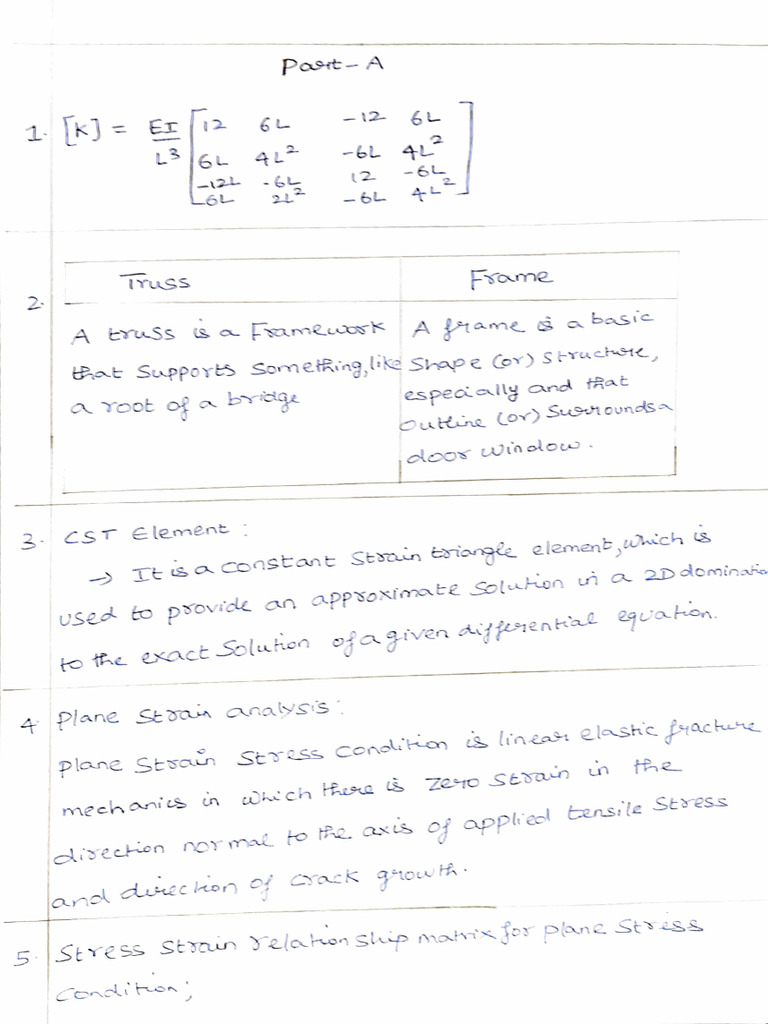 Part - A
1. [K] = EI/L³ [12 6L -12 6L
6L 4L² -6L 4L²
-12L -6L 12 -6L
6L 2L² -6L 4L²]
2. Truss Frame
A truss is a Framework
that supports something, like
a root of a bridge
A frame is a basic
Shape (or) structure,
especially and that
outline (or) Surrounds a
door window.
3. CST Element :
→ It is a constant strain triangle element, which is
used to provide an approximate solution in a 2D dominatio
to the exact Solution of a given differential equation.
4 Plane strain analysis:
Plane Strain Stress condition is linear elastic fracture
mechanics in which there is zero strain in the
direction normal to the axis of applied tensile stress
and direction of crack growth.
5. Stress strain relationship matrix for plane stress
condition;